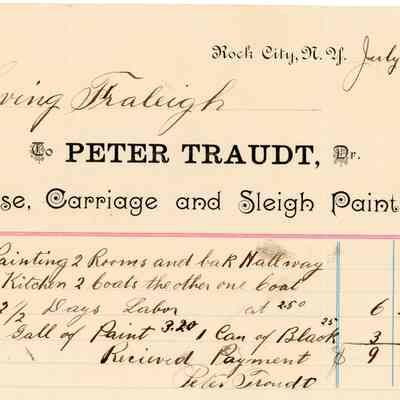 Rock City, N.Y. July
Irving Traleigh
To PETER TRAUDT, Dr.
se, Carriage and Sleigh Paint
Painting 2 Rooms and bak Hallway
Kitchen 2 Coats the other one Coat
2 1/2 Days Labor at 2 50 6
Gall of Paint 3.20 1 Can of Black 25 3
Recieved Payment $ 9
Peter Troudt